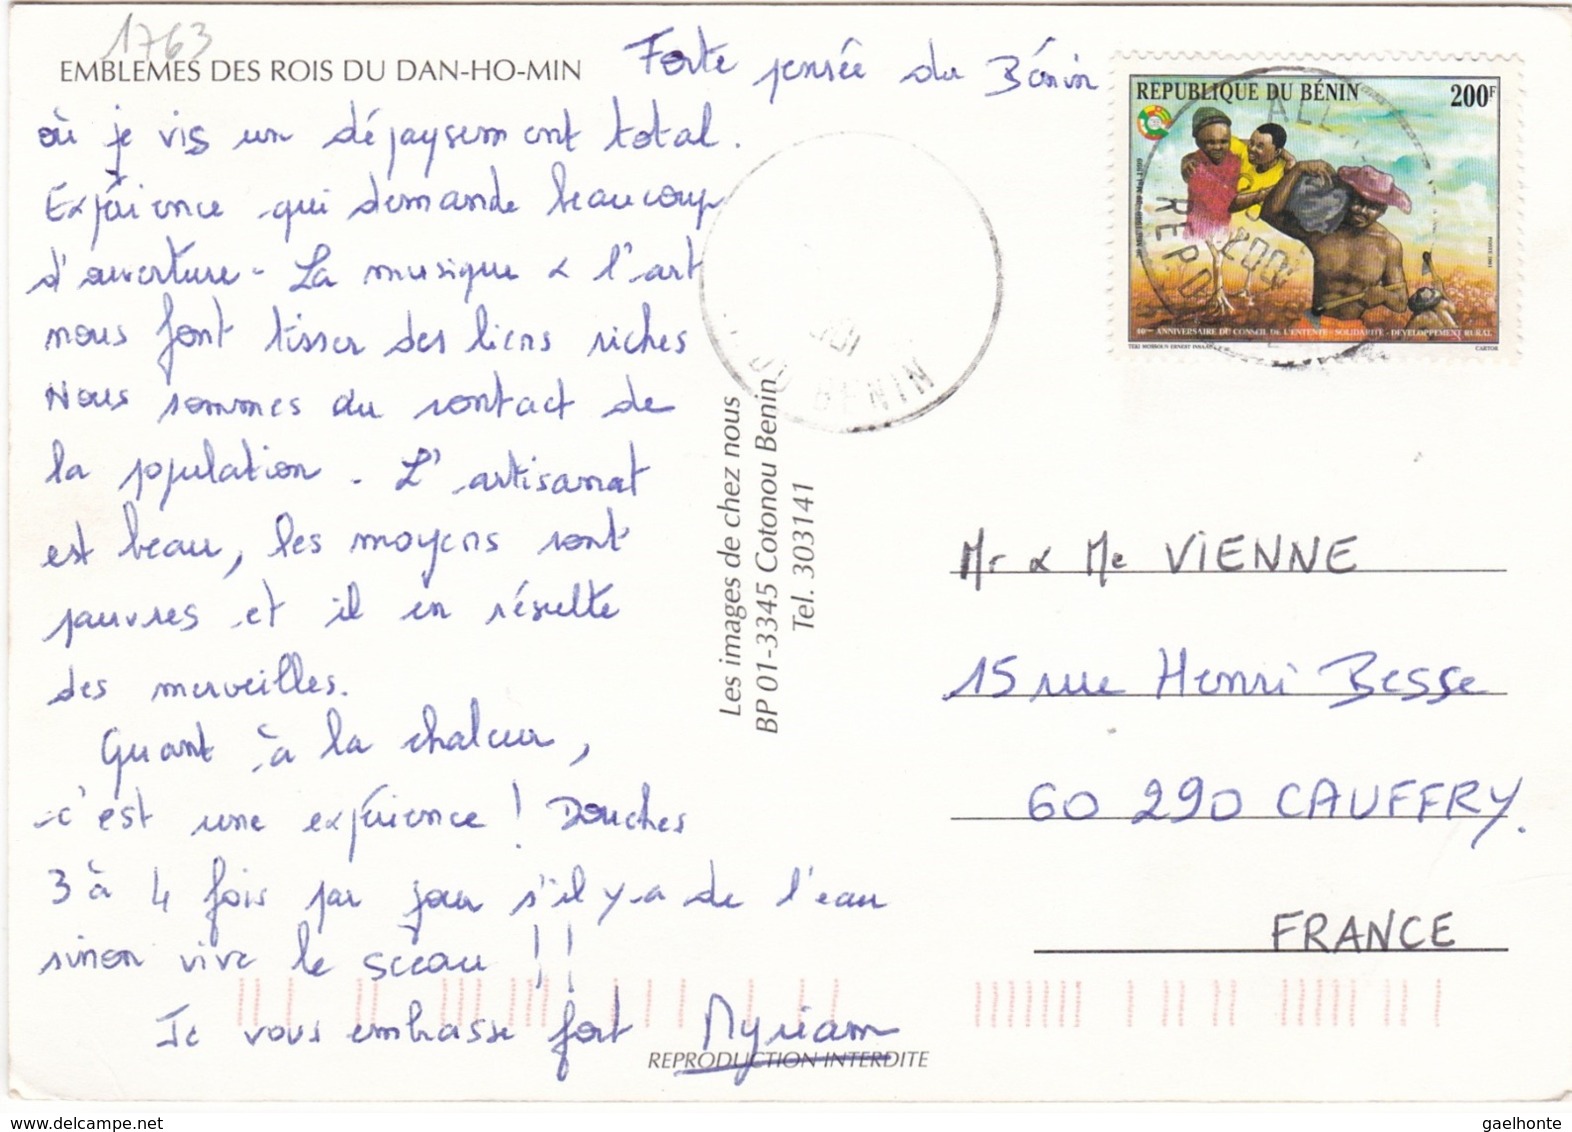 1763
EMBLEMES DES ROIS DU DAN-HO-MIN
Forte pensée du Bénin
où je vis un dépaysement total.
Expérience qui demande beaucoup
d'ouverture - La musique & l'art
nous font tisser des liens riches
Nous sommes au contact de
la population. L'artisanat
est beau, les moyens sont
pauvres et il en résulte
des merveilles.
Quant à la chaleur,
c'est une expérience ! Douches
3 à 4 fois par jour s'il y-a de l'eau
sinon vive le sceau !!
Je vous embrasse fort Myriam
REPRODUCTION INTERDITE
Les images de chez nous
BP 01-3345 Cotonou Benin
Tel. 303141
REPUBLIQUE DU BÉNIN 200F
40ème ANNIVERSAIRE DU CONSEIL DE L'ENTENTE - SOLIDARITE - DEVELOPPEMENT RURAL
CARTOR
BENIN
Mr & Me VIENNE
15 rue Henri Besse
60 290 CAUFFRY.
FRANCE
gaelhonte
www.delcampe.net